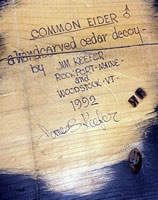 COMMON EIDER ♂
a handcarved cedar decoy -
by JIM KEEFER
ROCKPORT-MAINE-
and
WOODSTOCK-VT-
1992
James B Keefer